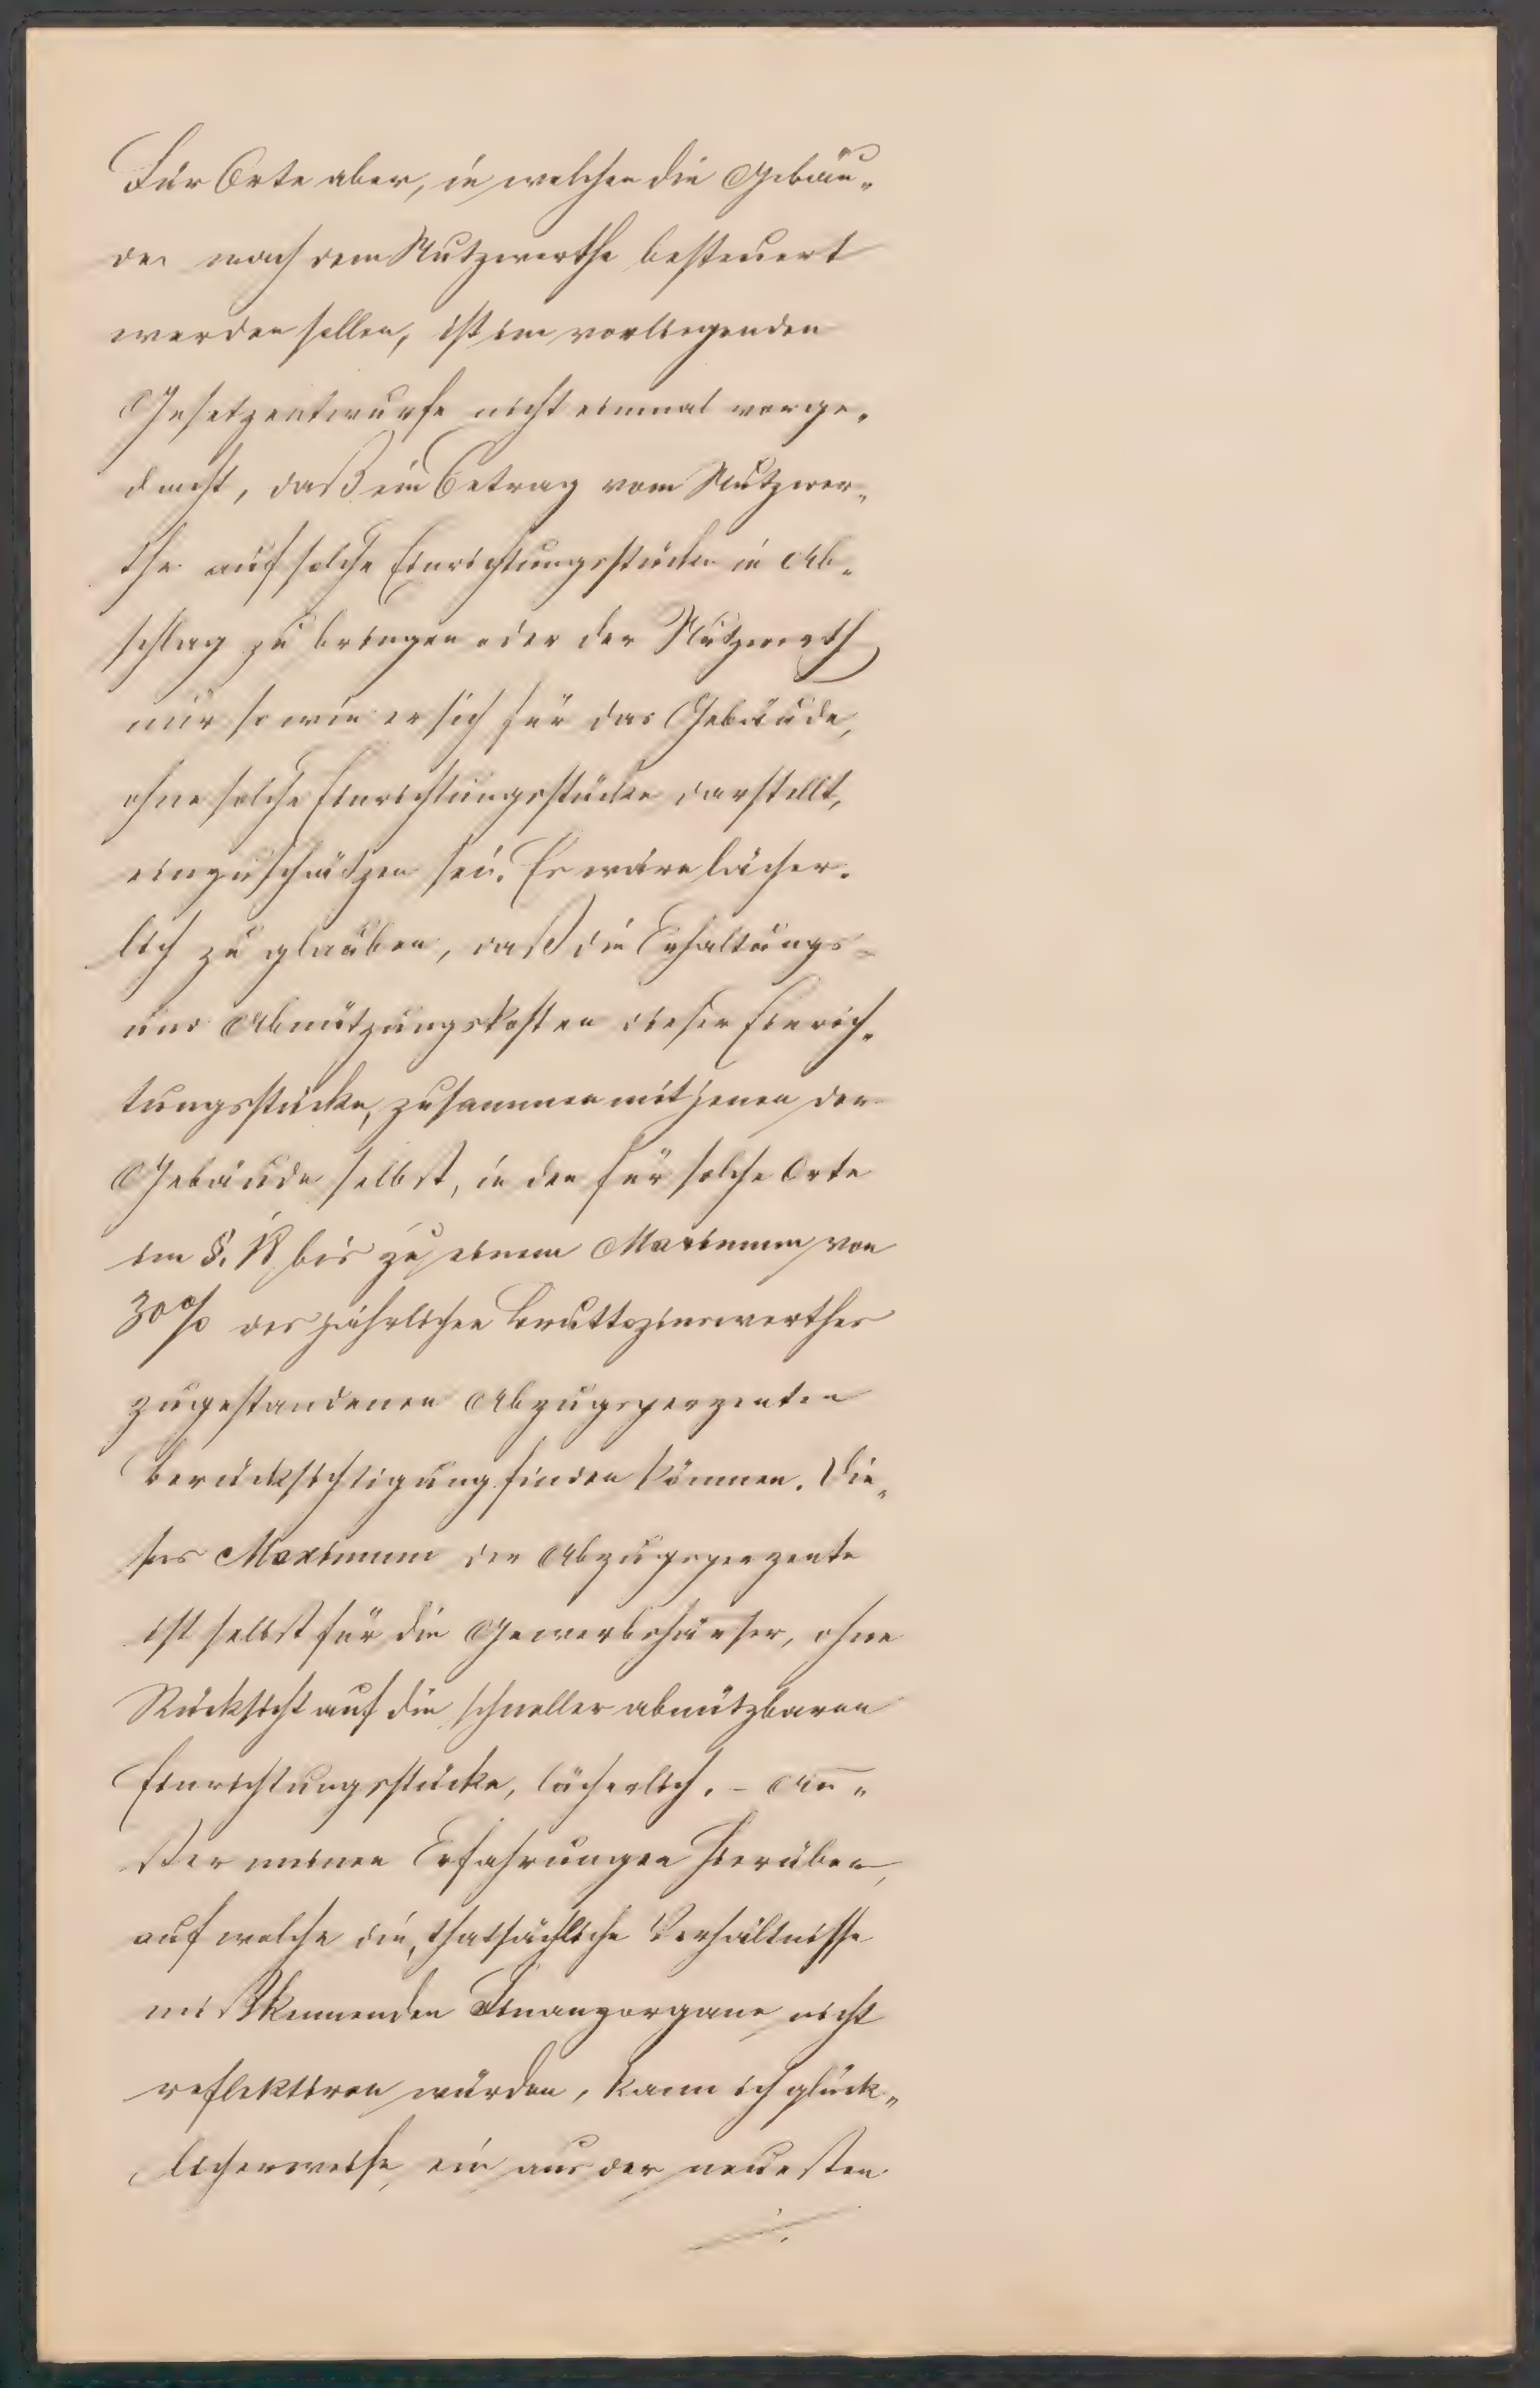 Für Orte aber, in welchen die Gebäu„
de nach dem Nutzwerthe besteuert
werden sollen, ist im vorliegenden
Gesetzentwurfe nicht einmal vorge„
dacht, daß ein Betrag vom Nutzwer„
the auf solche Einrichtungsstücke in Ab„
schlag zu bringen oder der Nutzwerth
nur so wie er sich für das Gebäude,
ohne solche Einrichtungsstücke darstellt,
einzuschätzen sei. Es wäre lächer„
lich zu glauben, daß die Erhaltungs-
und Abnützungskosten dieser Einrich„
tungsstücke, zusammen mit jenen der
Gebäude selbst, in den für solche Orte
im §. bis zu einem Maximum von
30% des jährlichen Bruttozinswerthes
zugestandenen Abzugsperzenten
Berücksichtigung finden können. Die„
ses Maximum der Abzugsperzente
ist selbst für die Gewerbehäuser, ohne
Rücksicht auf die schneller abnützbaren
Einrichtungsstücke, lächerlich. – Au„
ßer meinen Erfahrungen hierüber,
auf welche die, thatsächliche Verhältnisse
mißkennenden Finanzorgane nicht
reflektiren würden, kann ich glück„
licherweise, ein aus der neuesten
./.